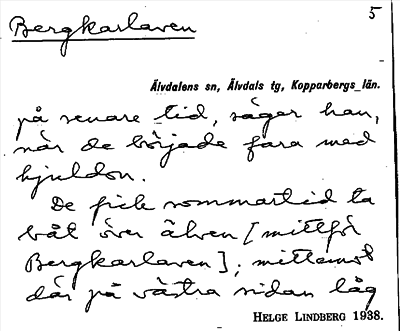 Bergkarlaven
5
Älvdalens sn, Älvdals tg, Kopparbergs län.
på senare tid, säger han,
när de började fara med
hjuldon.
De fick sommartid ta
båt över älven [mittför
Bergkarlaven]; mittemot
där på västra sidan låg
HELGE LINDBERG 1938.